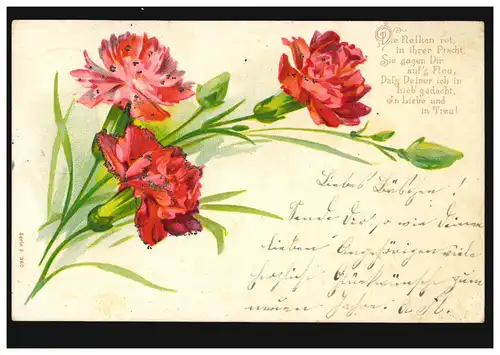 Die Nelken rot,
in ihrer Pracht,
Sie sagen Dir
auf's Neu,
Daß Deiner ich in
Lieb' gedacht,
In Liebe und
in Treu!
Liebes Bäschen!
Sende Dir, so wie Deinen
lieben Angehörigen viele
herzliche Glückwünsche zum
neuen Jahre.
Serie 2 360